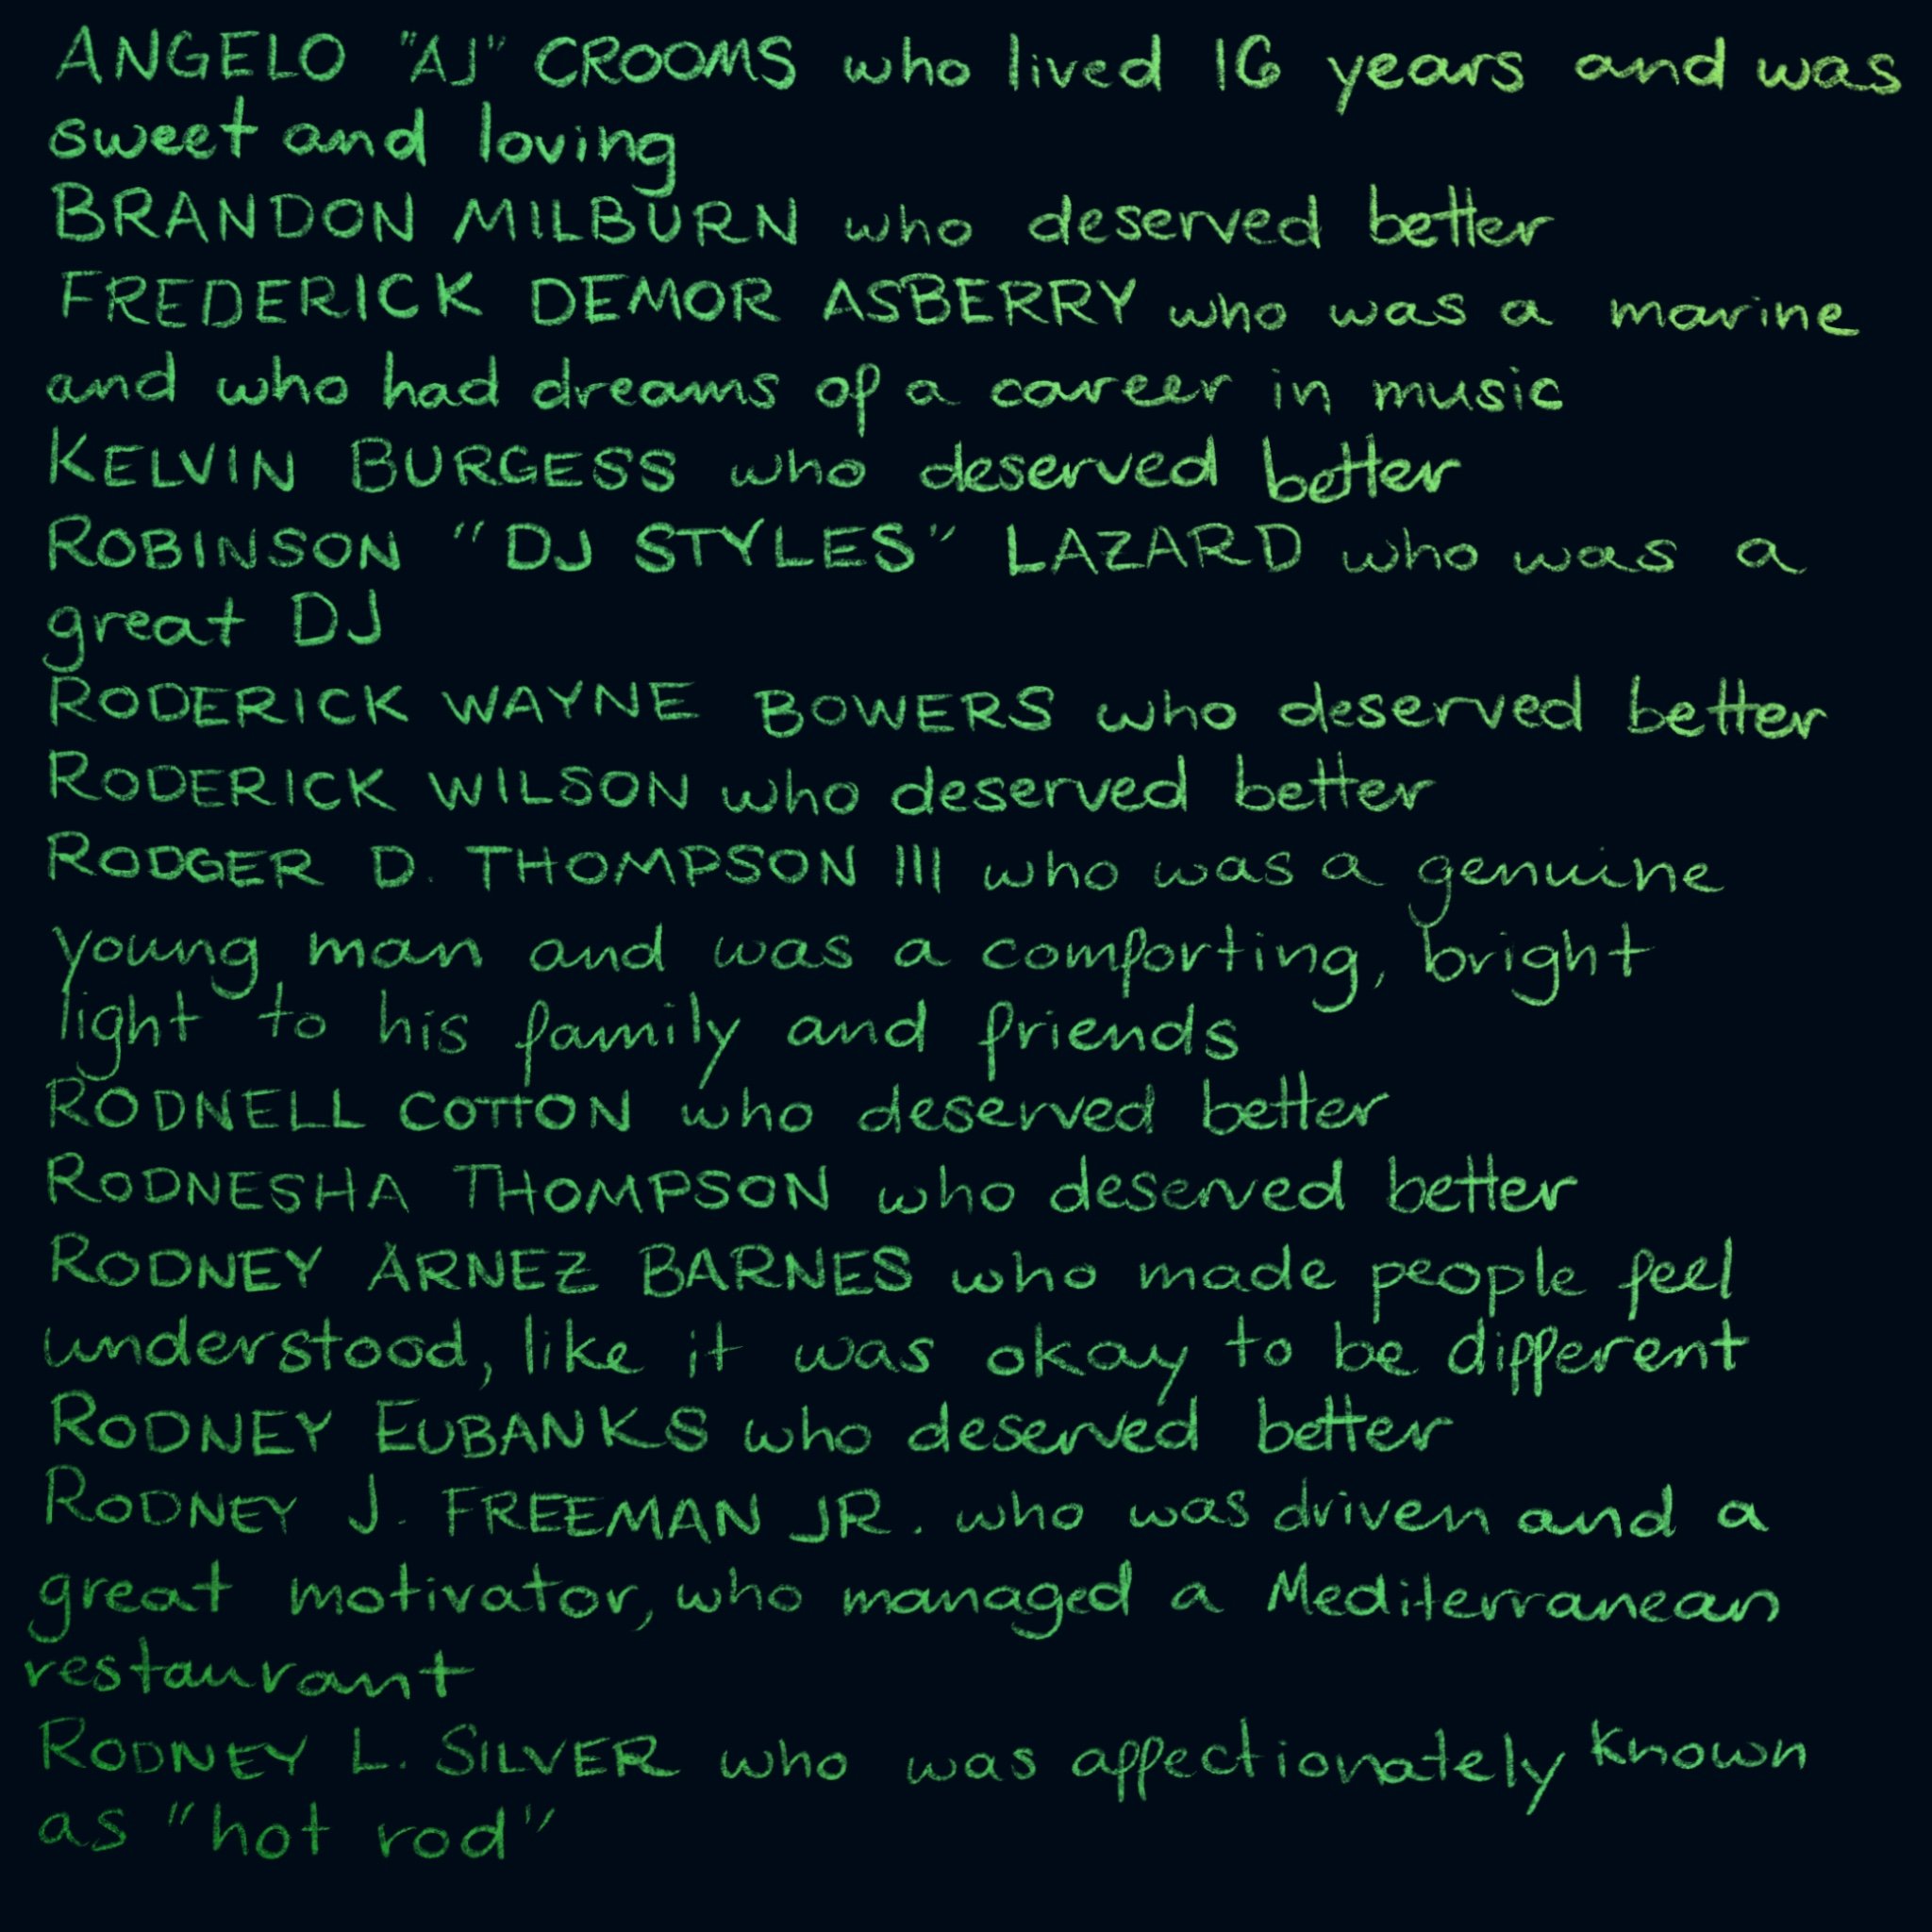 ANGELO "AJ" CROOMS who lived 16 years and was
sweet and loving
BRANDON MILBURN who deserved better
FREDERICK DEMOR ASBERRY who was a marine
and who had dreams of a career in music
KELVIN BURGESS who deserved better
ROBINSON "DJ STYLES" LAZARD who was a
great DJ
RODERICK WAYNE BOWERS who deserved better
RODERICK WILSON who deserved better
RODGER D. THOMPSON III who was a genuine
young man and was a comforting, bright
light to his family and friends
RODNELL COTTON who deserved better
RODNESHA THOMPSON who deserved better
RODNEY ARNEZ BARNES who made people feel
understood, like it was okay to be different
RODNEY EUBANKS who deserved better
RODNEY J. FREEMAN JR. who was driven and a
great motivator, who managed a Mediterranean
restaurant
RODNEY L. SILVER who was affectionately known
as "hot rod"